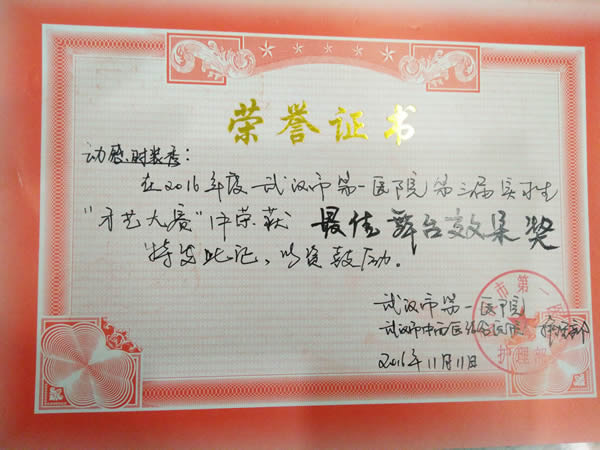 荣誉证书
动感时装秀：
在2016年度武汉市第一医院第三届实习生
"才艺大赛"中荣获 最佳舞台效果奖
特发此证，以资鼓励。
武汉市第一医院
武汉市中西医结合医院 护理部
2016年11月11日
市第一
护理部